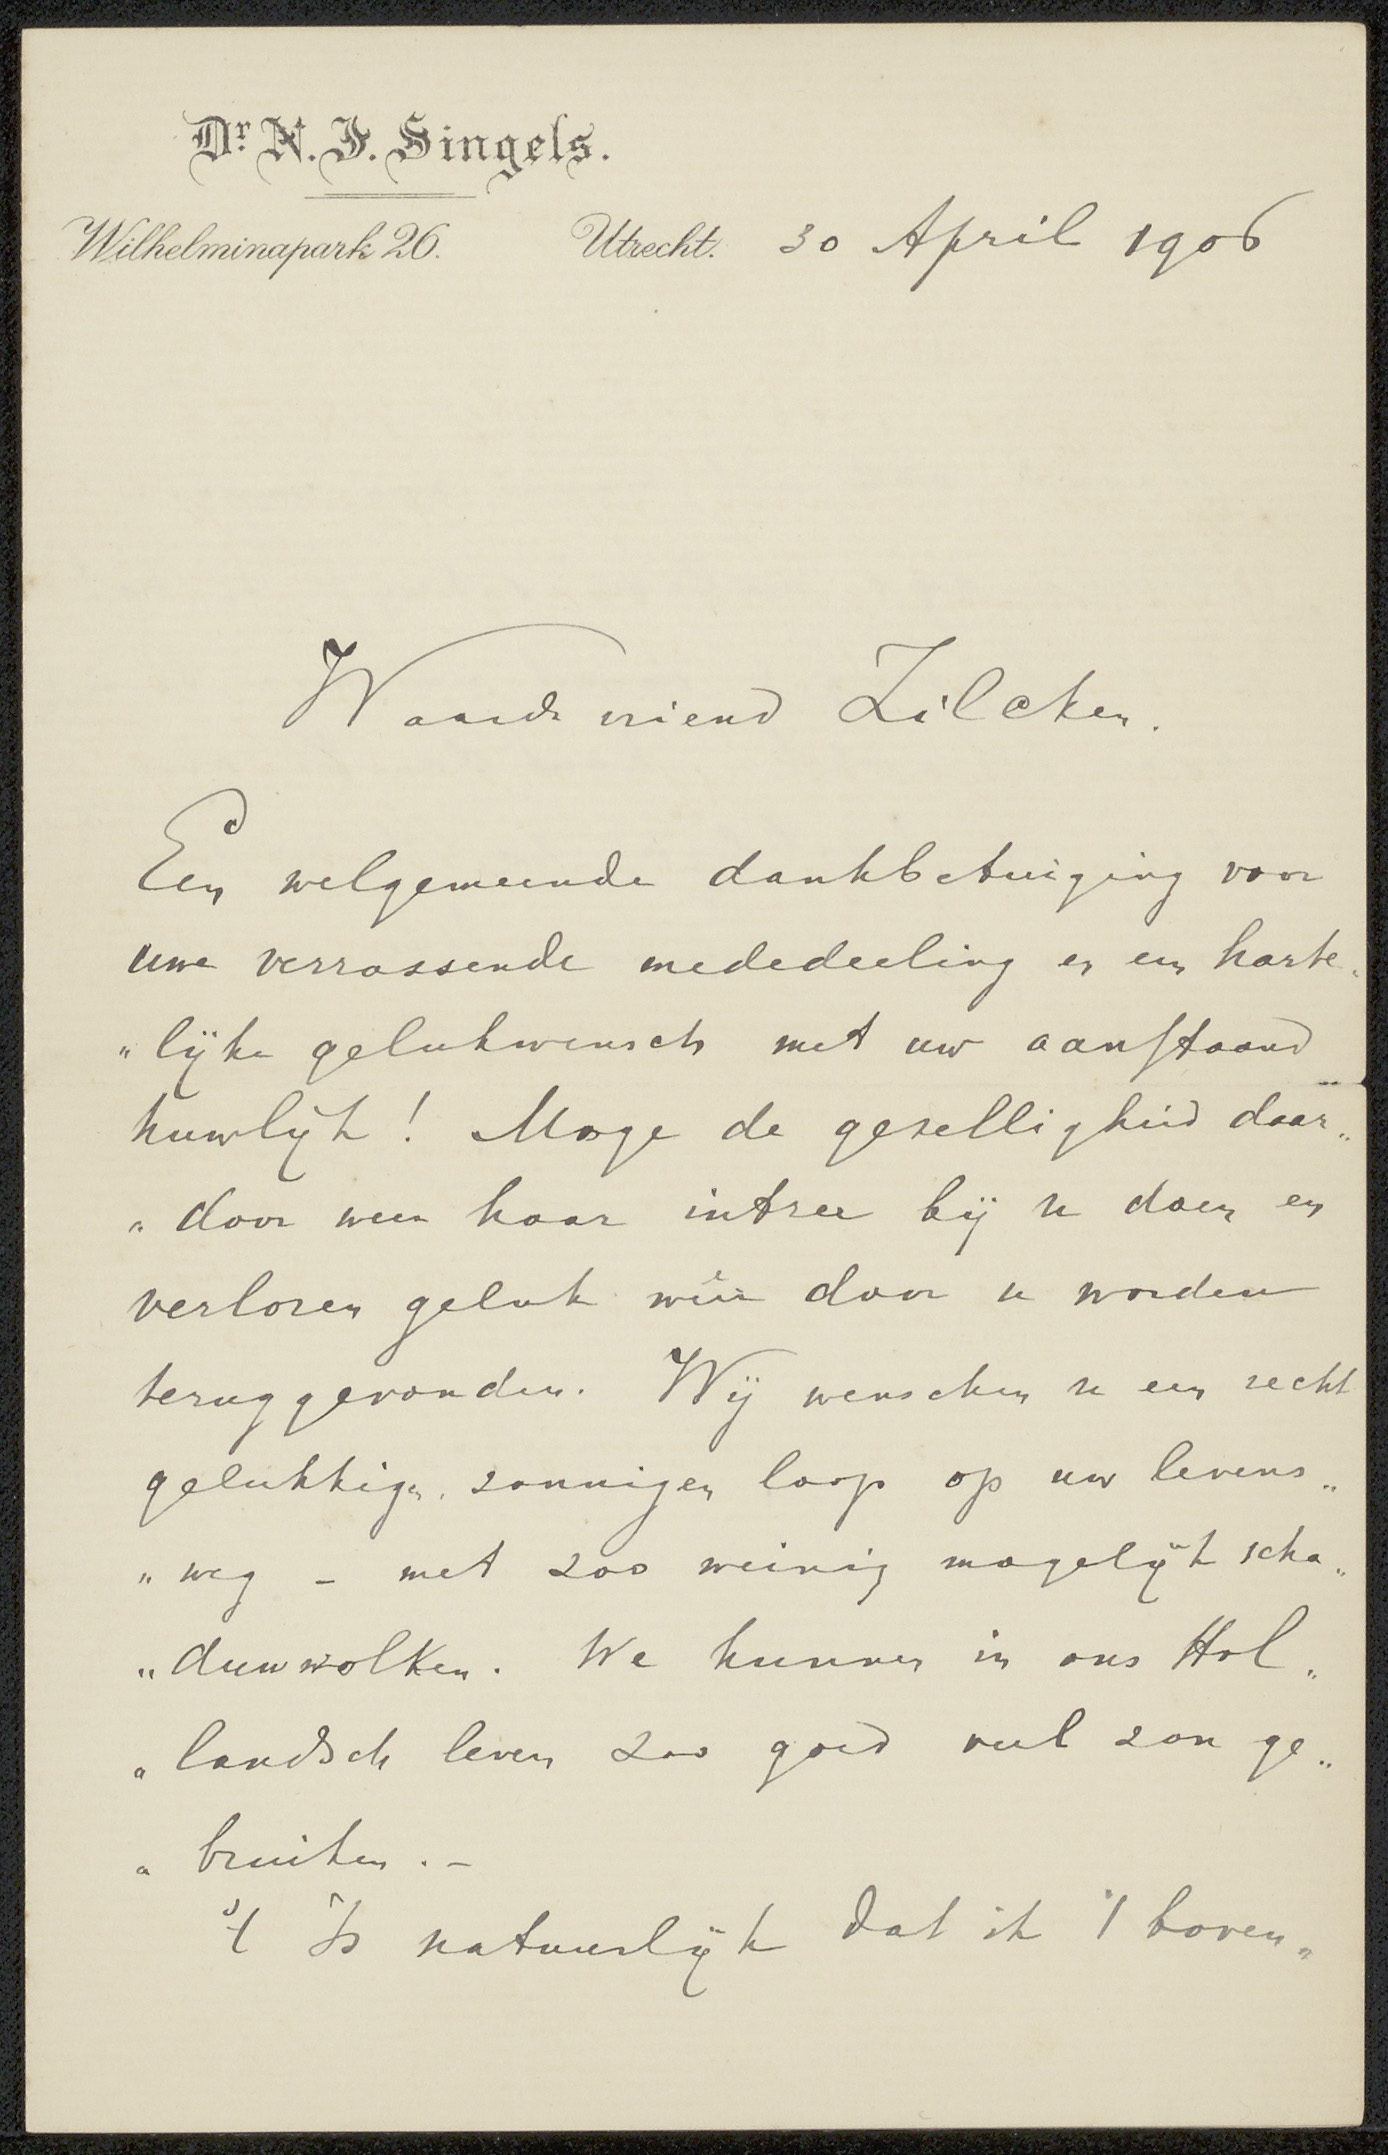 Dr. N. J. Singels.
Wilhelminapark 26. Utrecht. 30 April 1906
Waarde vriend Zilcken.
Een welgemeende dankbetuiging voor
uwe verrassende mededeeling en een harte„
„lijke gelukwensch met uw aanstaand
huwlijk! Moge de gezelligheid daar„
„door weer haar intree bij u doen en
verloren geluk wêer door u worden
teruggevonden. Wij wenschen u een recht
gelukkigen, zonnigen loop op uw levens„
„weg – met zoo weinig mogelijk scha„
„duwwolken. We kunnen in ons Hol„
„landsch leven zoo goed veel zon ge„
„bruiken. –
't Is natuurlijk dat ik 't boven„